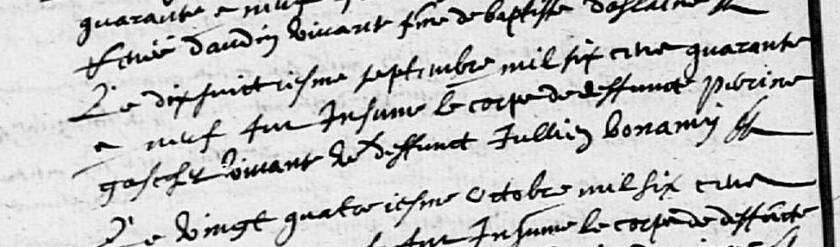 quarante e neuf
daudin vivant fme de baptiste
Le dixhuictiesme septembre mil six cens quarante
e neuf fut Inhumé le corps de deffuncte perrine
gaschet vivant ve deffunct Jullien bonamy
Le vingt quatriesme Octobre mil six cens
fut Inhumé le corps de deffuncte